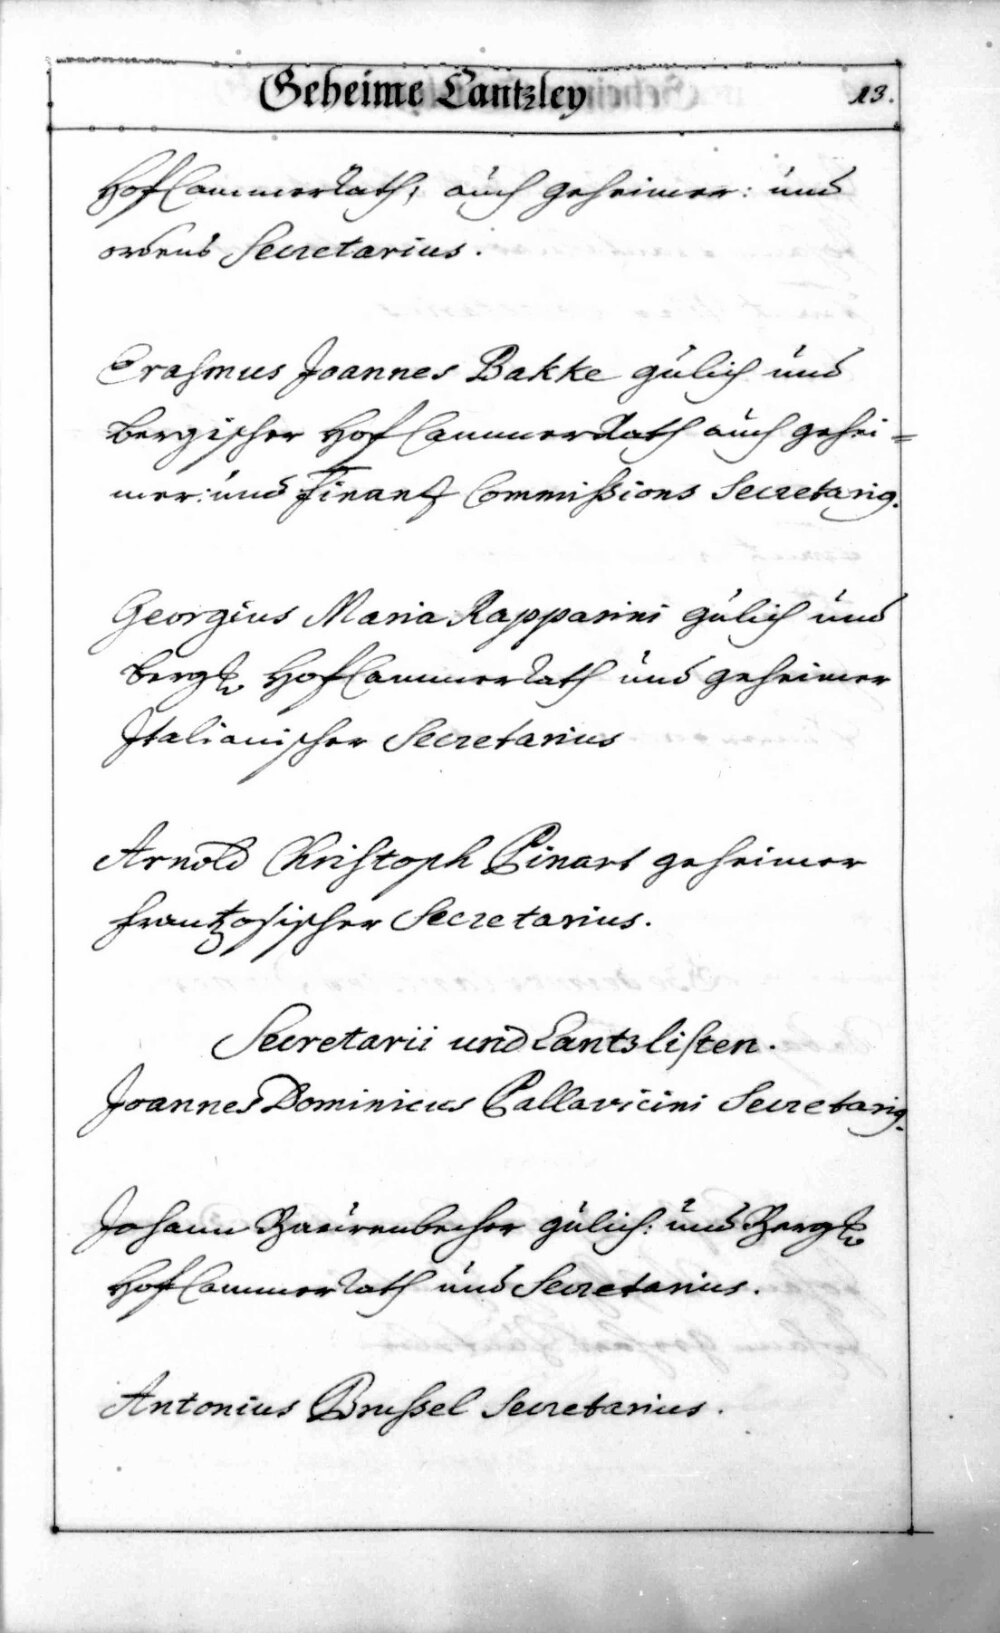 Geheime Cantzley 13.
HofCammerRath, auch geheimer: und
ordens Secretarius.
Erasmus Joannes Bakke gülich und
bergischer HofCammerRath auch gehei=
mer: und Finantz Commißions Secretarig.
Georgius Maria Rapparini gülich und
berg. HofCammerRath und geheimer
Italianischer Secretarius
Arnold Christoph Pinart geheimer
frantzosischer Secretarius.
Secretarii und Cantzlisten.
Joannes Dominicus Pallavicini Secretarig.
Johann Baürenbecher gülich: und Berg.
HofCammerRath und Secretarius.
Antonius Brußel Secretarius.